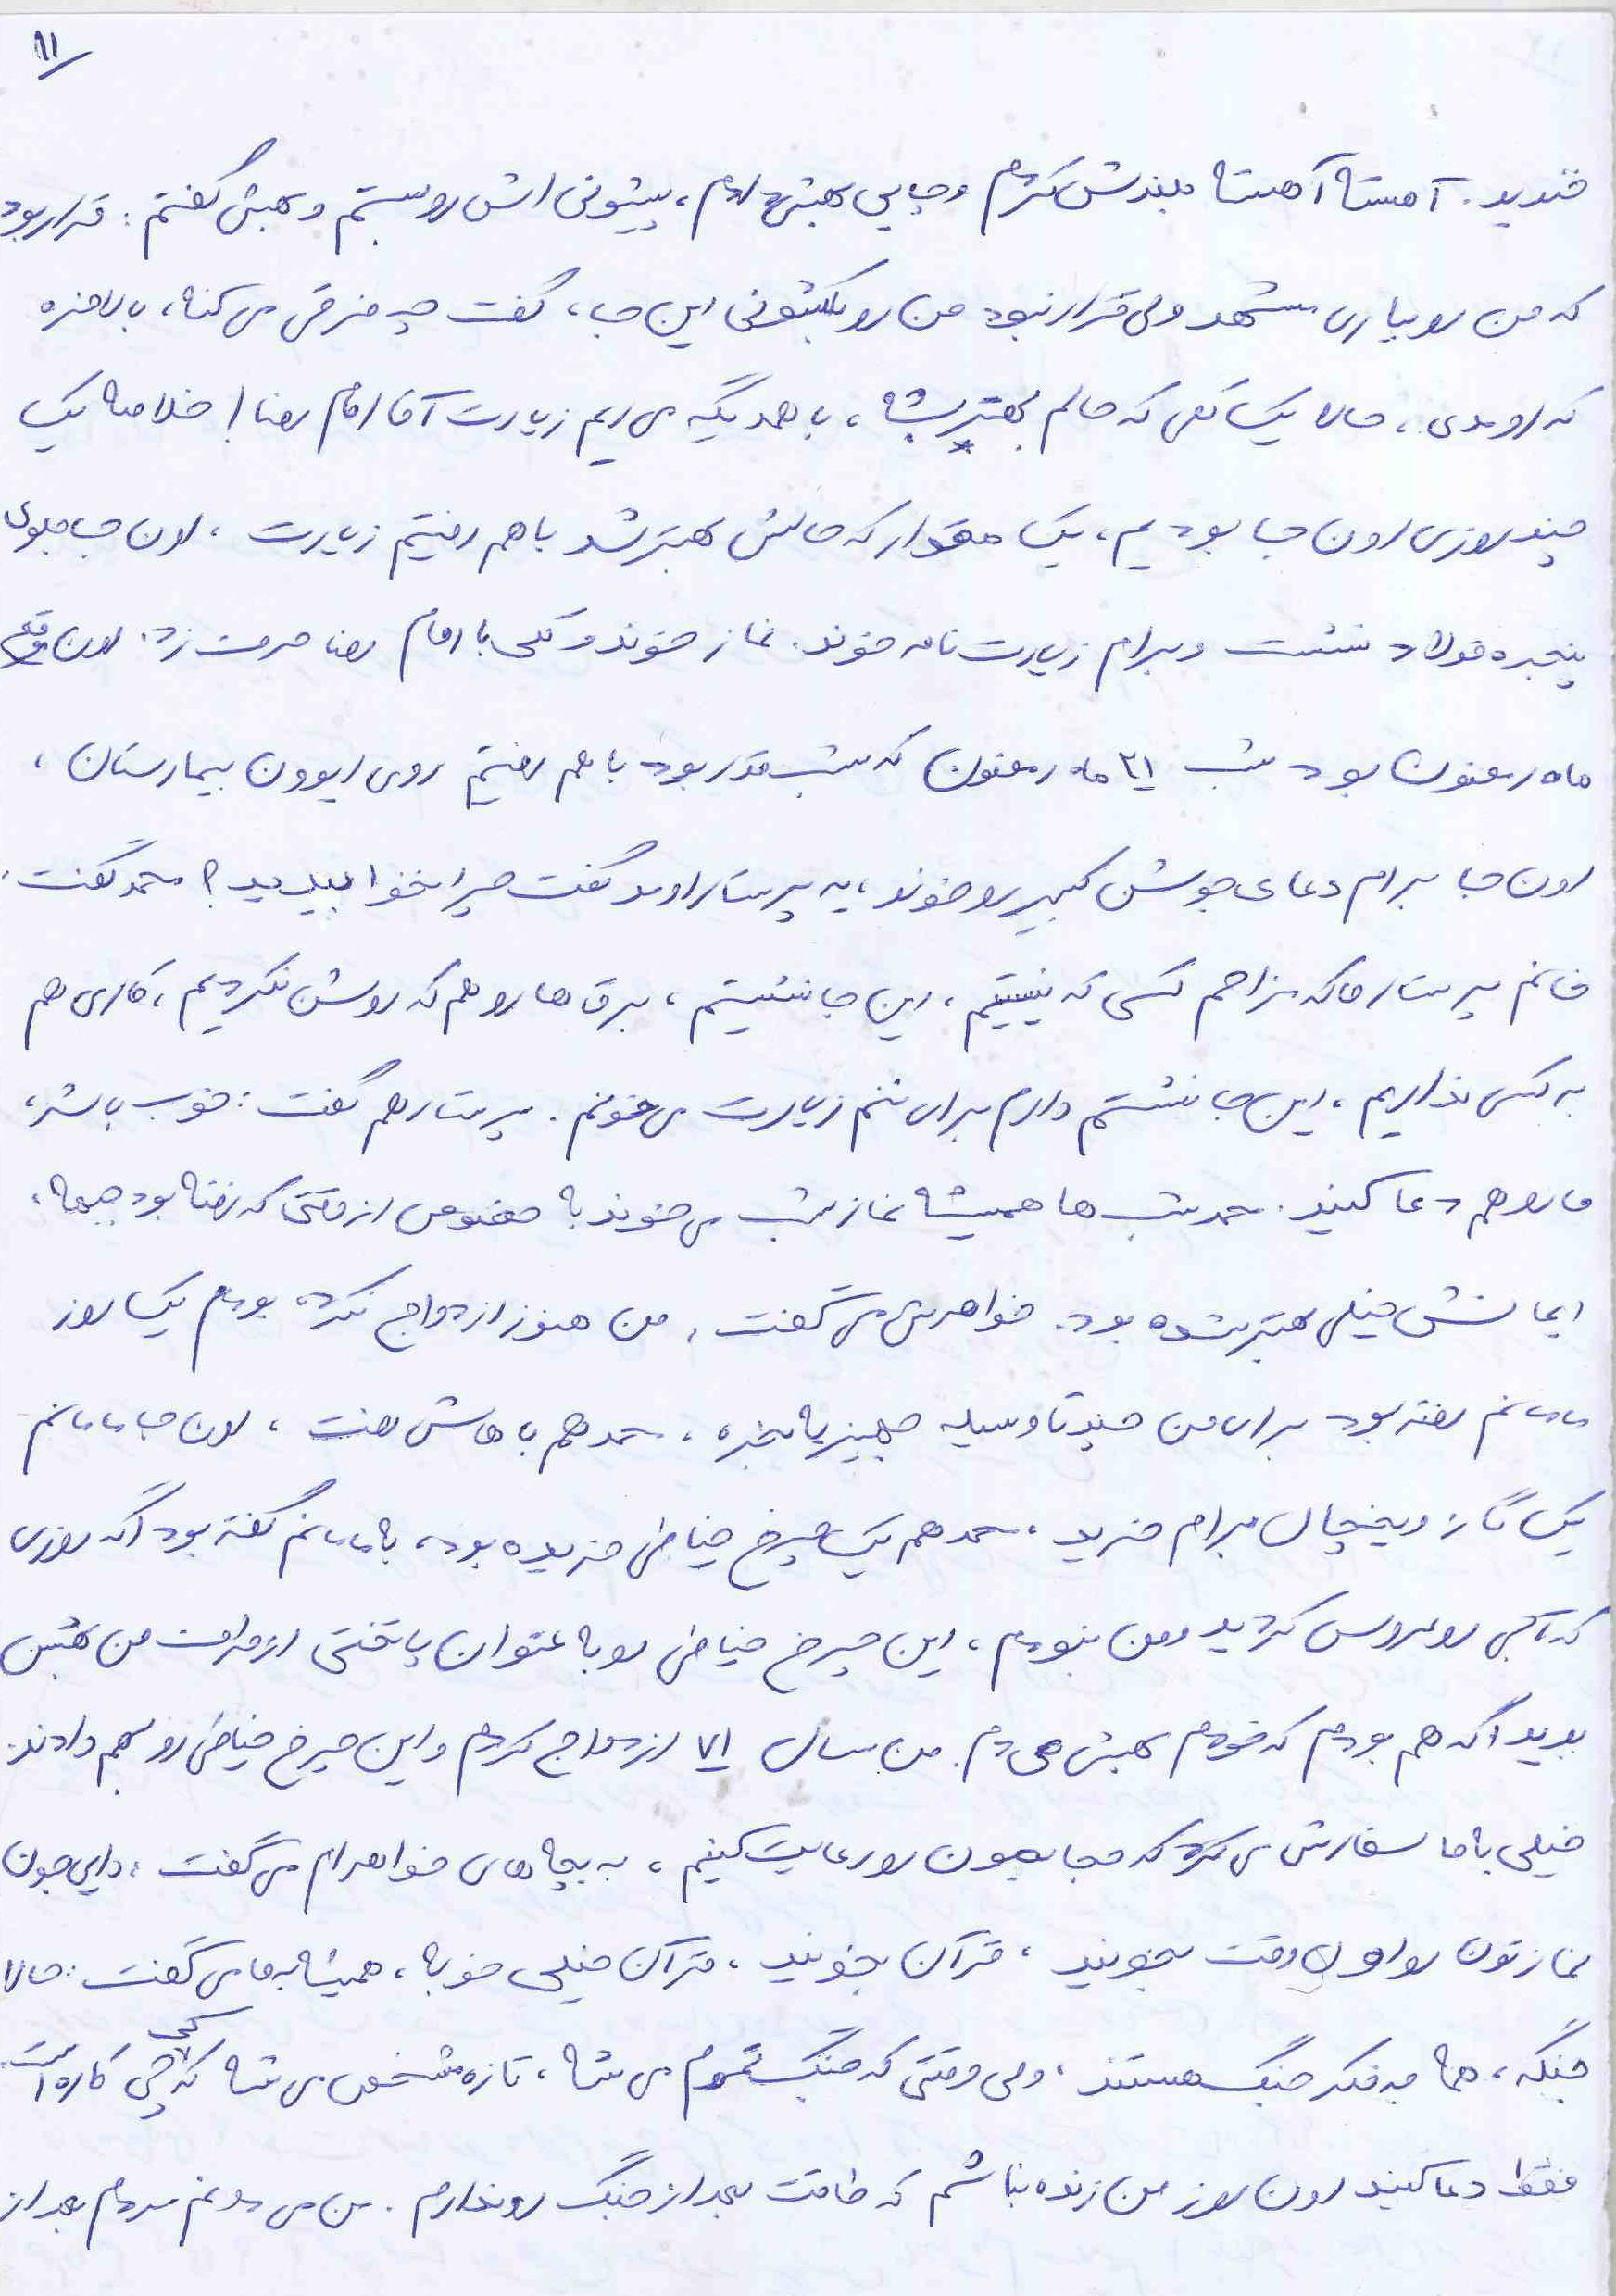 ۱۱
خندید. آهسته آهسته بلندش کردم و چایی بهش دادم، پیشونی اش رو بستم و بهش گفتم: قرار بود
که من رو بیاری مشهد ولی قرار نبود من رو بکشونی این جا، گفت چه فرقی می کنه، بالاخره
که اومدی، حالا یک کمی که حالم بهتر بشه، با همدیگه می ریم زیارت آقا امام رضا! خلاصه یک
چند روزی اون جا بودیم، یک مقدار که حالش بهتر شد با هم رفتیم زیارت، اون جا جلوی
پنجره فولاد نشست و برام زیارت نامه خوند. نماز خوند و کلی با امام رضا حرف زد. اون موقع
ماه رمضون بود شب ۲۱ ماه رمضون که شب قدر بود با هم رفتیم روی ایوون بیمارستان،
اون جا برام دعای جوشن کبیر رو خوند، یه پرستار اومد گفت چرا نخوابیدید؟ محمد گفت:
خانم پرستار ما که مزاحم کسی که نیستیم، این جا نشستیم، برق ها رو هم که روشن نکردیم، کاری هم
به کسی نداریم، این جا نشستم دارم برای ننم زیارت می خونم. پرستار هم گفت: خوب باشه،
ما رو هم دعا کنید. محمد شب ها همیشه نماز شب می خوند به خصوص از وقتی که رفته بود جبهه،
ایمانش خیلی بهتر شده بود. خواهرش می گفت: من هنوز ازدواج نکرده بودم یک روز
مامانم رفته بود برای من چند تا وسیله جهیزیه بخره، محمد هم باهاش رفت، اون جا مامانم
یک گاز و یخچال برام خرید، محمد هم یک چرخ خیاطی خریده بود، به مامانم گفته بود اگه روزی
که آبجی رو عروس کردید و من نبودم، این چرخ خیاطی رو به عنوان پاتختی از طرف من بهش
بدید اگه هم بودم که خودم بهش می دم. من سال ۷۱ ازدواج کردم و این چرخ خیاطی رو بهم دادند.
خیلی به ما سفارش می کرد که حجابمون رو رعایت کنیم، به بچه های خواهرام می گفت: دایی جون
نمازتون رو اول وقت بخونید، قرآن بخونید، قرآن خیلی خوبه، همیشه به ما می گفت: حالا
جنگه، همه به فکر جنگ هستند، ولی وقتی که جنگ تموم می شه، تازه مشخص می شه که کی چی کاره است
فقط دعا کنید اون روز من زنده نباشم که طاقت بعد از جنگ رو ندارم. من می دونم مردم بعد از